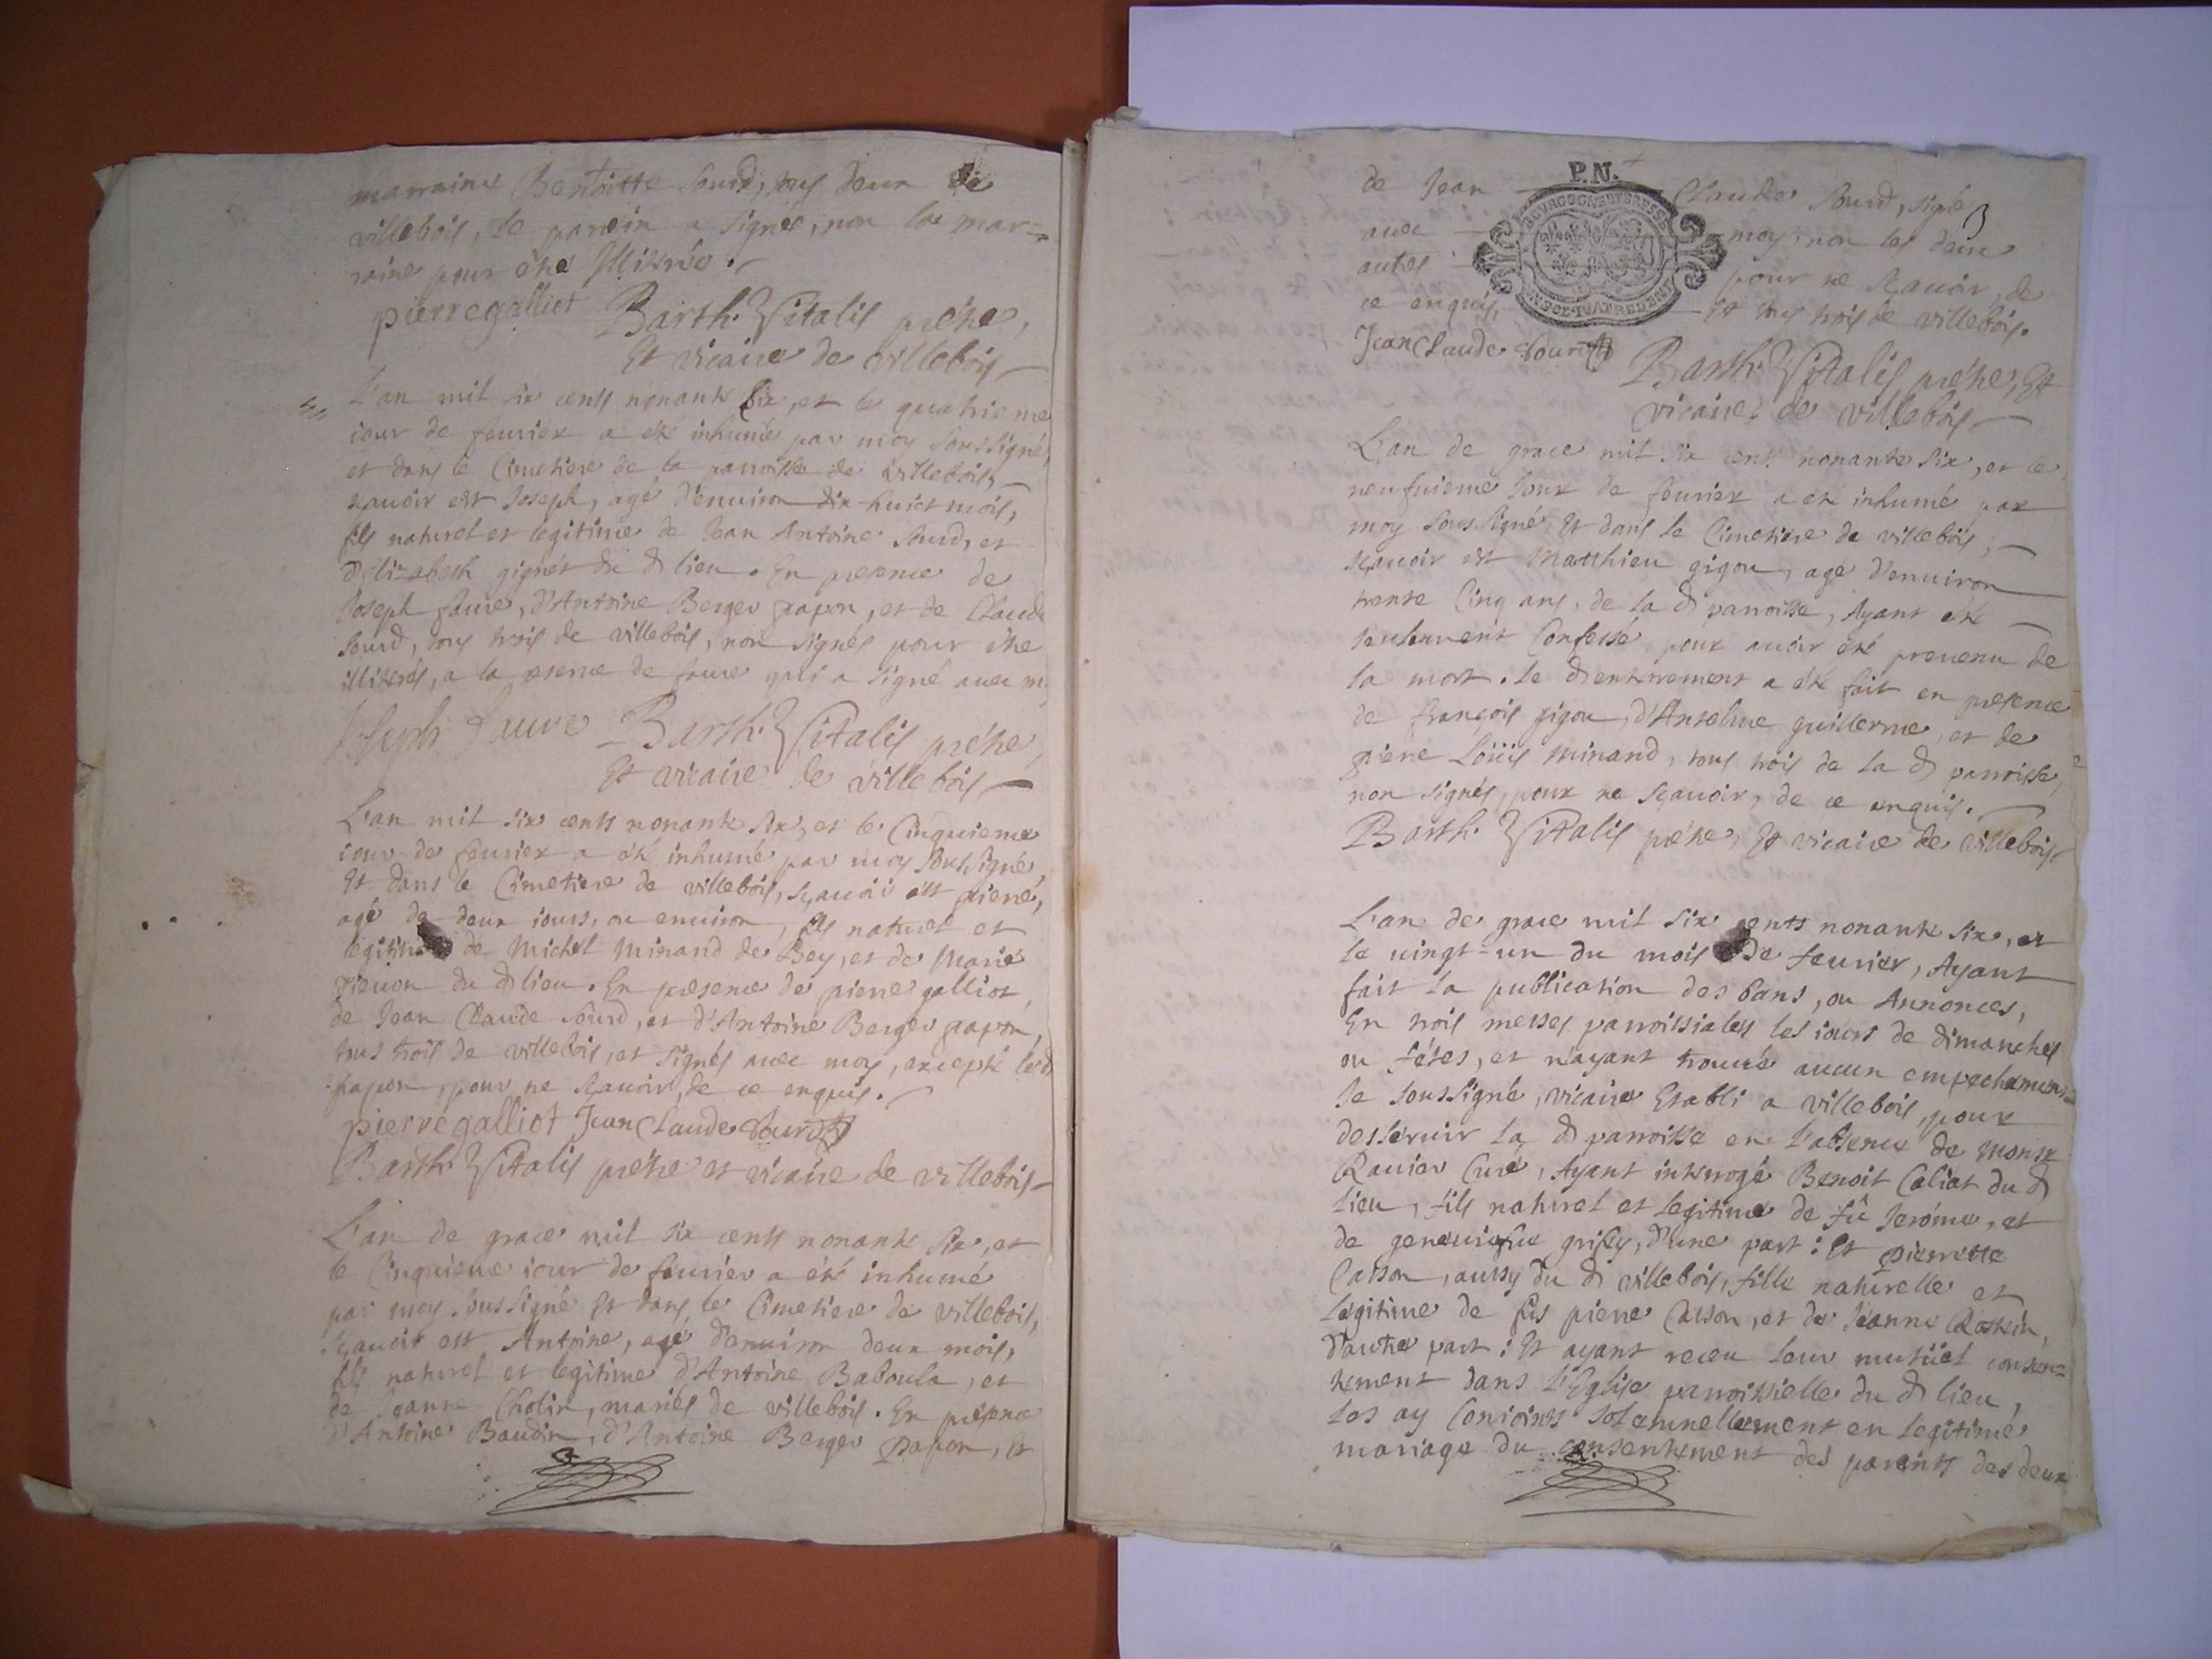 marraine Benoitte Sourd, tous deux de
villebois, le parrin a signé, non la mar=
raine pour être illitrée.
pierre galliot Barth. Vitalis prétre,
Et vicaire de villebois
L'an mil six cents nonante six, et le quatrieme
iour de feurier a été inhumé par moy soussigné,
et dans le Cimetiere de la parroisse de villebois,
scauoir est Joseph, agé d'enuiron dix-huict mois,
fils naturel et legitime de Jean Antoine Sourd, et
d'Elizabeth gignet du d lieu. En presence de
Joseph faure, d'Antoine Berger papon, et de Claude
Sourd, tous trois de villebois, non signés pour être
illitrés, a la reserue de faure qui a signé auec m
Joseph Faure Barth. Vitalis prétre,
Et vicaire de villebois
L'an mil six cents nonante six, et le Cinquieme
iour de feurier a été inhumé par moy soussigné,
Et dans le Cimetiere de villebois, sçauoir est pierre,
agé de deux iours, ou enuiron, fils naturel et
legitime de Michel Minand de Bey, et de Marie
du d lieu. En presence de pierre galliot,
de Jean Claude Sourd, et d'Antoine Berger papon,
tous trois de villebois, et signés auec moy, excepté led
papon, pour ne sçauoir, de ce enquis.
pierre galliot Jean Claude Sourd
Barth. Vitalis prétre et vicaire de villebois
L'an de grace mil six cents nonante six, et
le Cinquieme iour de feurier a été inhumé
par moy soussigné Et dans le Cimetiere de villebois,
sçauoir est Antoine, agé d'enuiron deux mois,
fils naturel et legitime d'Antoine Baboula, et
de Jeanne Cholin, mariés de villebois. En presence
d'Antoine Baudin, d'Antoine Berger Papon, Et
P.N.
BOVRGOGNE ET BRESSE
de Jean Claude Sourd, signé
auec moy, non les deux
autres pour ne sçauoir, de
ce enquis, Et tous trois de villebois.
Jean Claude Sourd
Barth. Vitalis prétre, Et
vicaire de villebois
L'an de grace mil six cents nonante six, et le
neufuieme Jour de feurier a été inhumé par
moy soussigné, Et dans le Cimetiere de villebois,
sçauoir est Matthieu gigou, agé d'enuiron
trente Cinq ans, de la d parroisse, Ayant eté
seulement Confessé, pour auoir été preuenu de
la mort. le d enterrement a été fait en presence
de françois gigou, d'Anselme guillerme, et de
pierre Loüis Minand, tous trois de la d parroisse,
non signés, pour ne sçauoir, de ce enquis.
Barth. Vitalis prétre, Et vicaire de villebois
L'an de grace mil six cents nonante six, et
le vingt-un du mois de feurier, Ayant
fait la publication des bans, ou Annonces,
En trois messes parroissiales les iours de dimanches
ou fétes, et n'ayant trouué aucun empechement
Je soussigné, vicaire Etabli a villebois, pour
desseruir la d parroisse en l'absence de Monsr
Rauier Curé, Ayant interrogé Benoit Caliat du d
lieu, fils naturel et legitime de fû Jeróme, et
de geneuiefue grisey, d'une part: Et Pierrette
Casson, aussy du d villebois, fille naturelle et
legitime de fûs pierre Casson, et de Jeanne
d'autre part: Et ayant receu leur mutüel consen=
tement dans l'Eglise parroissielle du d lieu,
les ay Conioints solemnellement en legitime
mariage du consentement des parents des deux